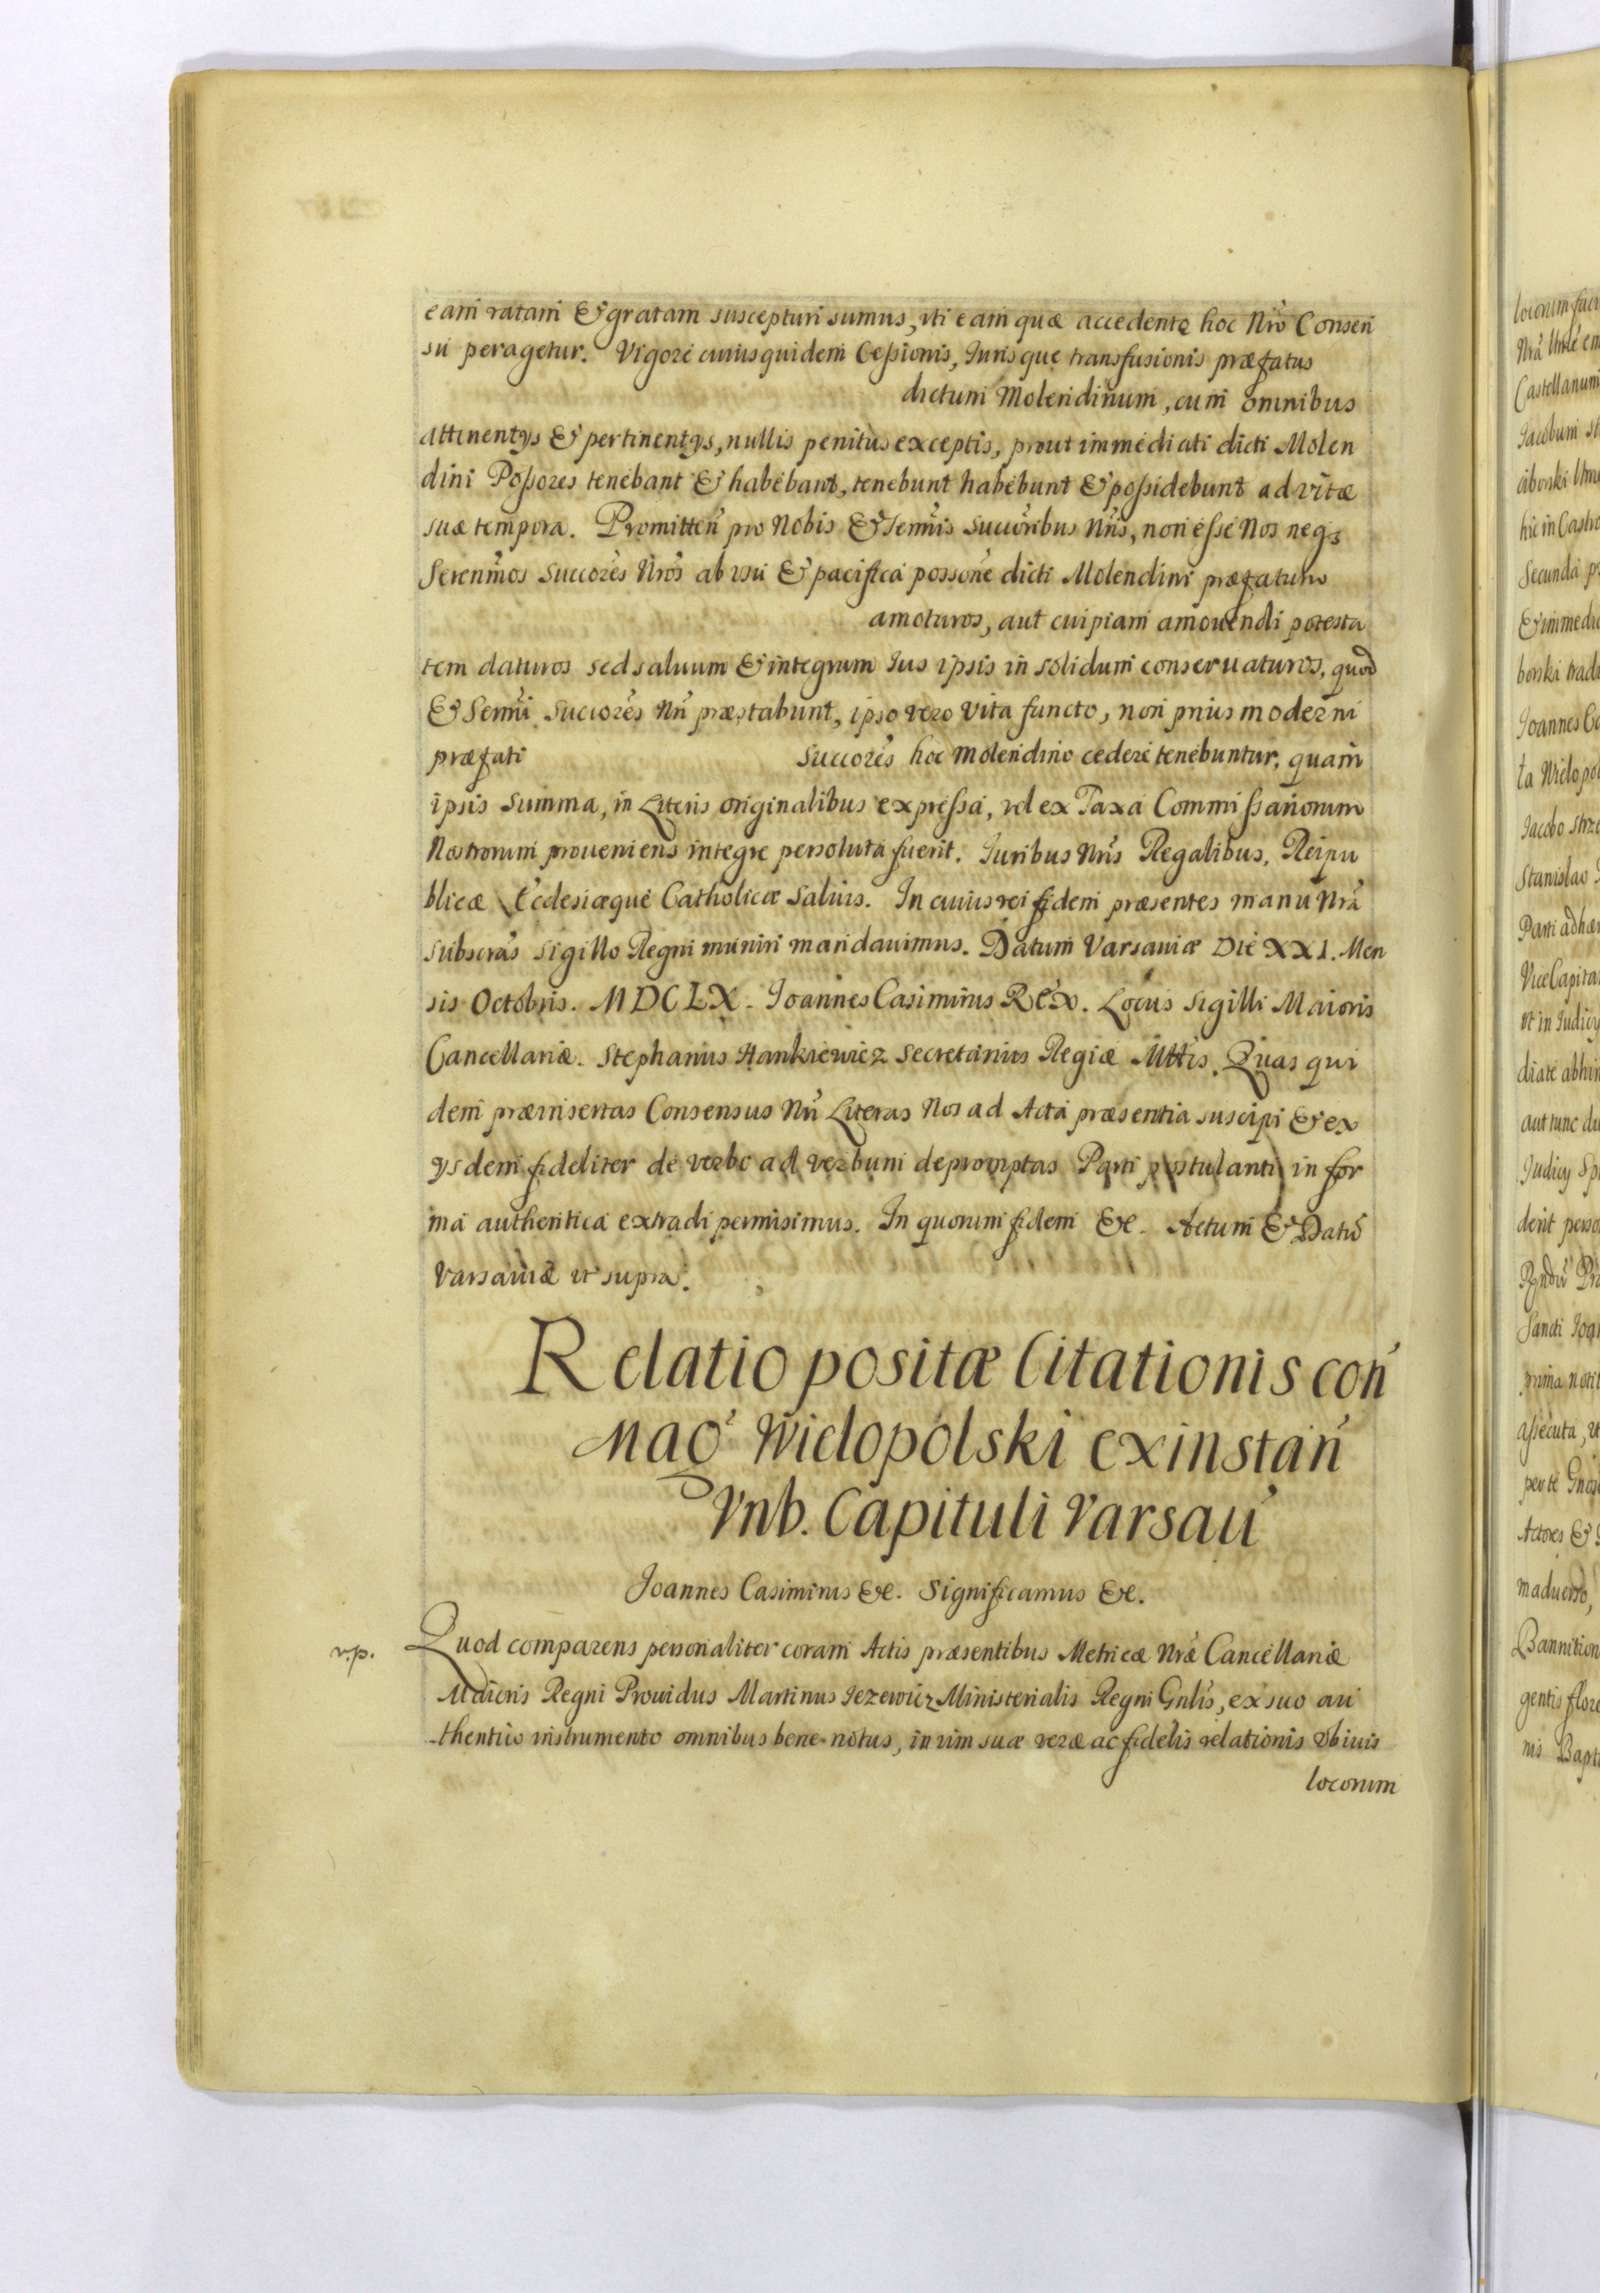 eam ratam & gratam suscepturi sumus, uti eam quæ accedente hoc Nro Consen
su peragetur. Vigore cuiusquidem Cessionis, Iurisque transfusionis præfatus
dictum Molendinum, cum omnibus
attinentys & pertinentys, nullis penitus exceptis, prout immediati dicti Molen
dini Possores tenebant & habebant, tenebunt habebunt & possidebunt ad vitæ
suæ tempora. Promitten pro Nobis & Sermis Succoribus Nris, non esse Nos neq3
Serenmos Succores Nros ab usu & pacifica possone dicti Molendini præfatum
amoturos, aut cuipiam amovendi potesta
tem daturos sed saluum & integrum Ius ipsis in solidum conseruaturos, quod
& Sermi Succores Nri præstabunt, ipso vero vita functo, non prius moderni
præfati Succores hoc Molendino cedere tenebuntur, quam
ipsis Summa, in Literis originalibus expressa, vel ex Taxa Commissariorum
Nostrorum proueniens integre persoluta fuerit. Iuribus Nris Regalibus, Reipu
blicæ Ecclesiæque Catholicæ saluis. In cuius rei fidem præsentes manu Nra
subscras sigillo Regni muniri mandauimus. Datum Varsauiæ Die XXI. Men
sis Octobris. MDCLX. Ioannes Casimirus Rex. Locus Sigilli Maioris
Cancellariæ. Stephanus Hankiewicz Secretarius Regiæ Mttis. Quas qui
dem præinsertas Consensus Nri Literas Nos ad Acta præsentia suscipi & ex
ysdem fideliter de verbo ad verbum depromptas Parti postulanti in for
ma authentica extradi permisimus. In quorum fidem &c. Actum & Datu
Varsauiæ ut supra.
Relatio positæ Citationis con
Maco Wielopolski ex instan
Vnb. Capituli Varsau
Joannes Casimirus &c. Significamus &c.
r.p.
Quod comparens personaliter coram Actis præsentibus Metricæ Nræ Cancellariæ
Maioris Regni Prouidus Martinus Iezewicz Ministerialis Regni Gnlis, ex suo au
thentico instrumento omnibus bene notus, in uim suæ veræ ac fidelis relationis ubiuis
locorum